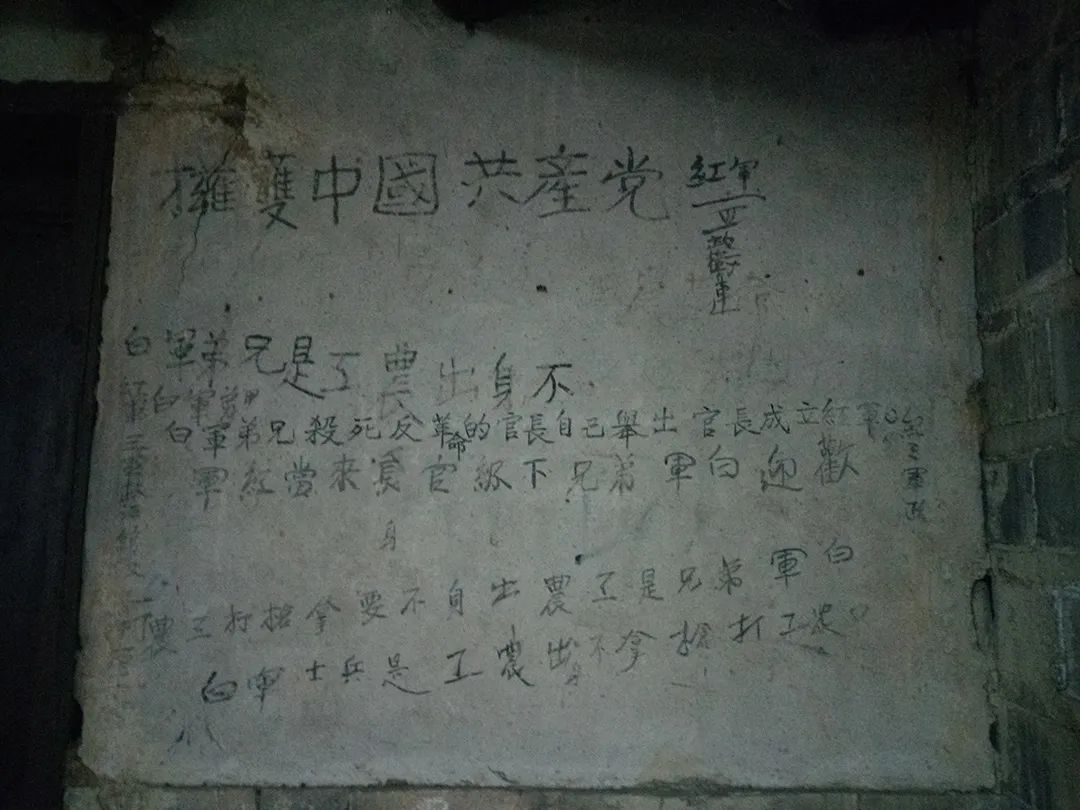 擁蒦中國共產党
紅軍
白軍弟兄是工農出身不
白軍弟兄殺死反革命的官長自己舉出官長成立紅軍
歡迎白軍弟兄下級官員來當紅軍
白軍弟兄是工農出身不要拿槍打工農
白軍士兵是工農出身不拿槍打工农